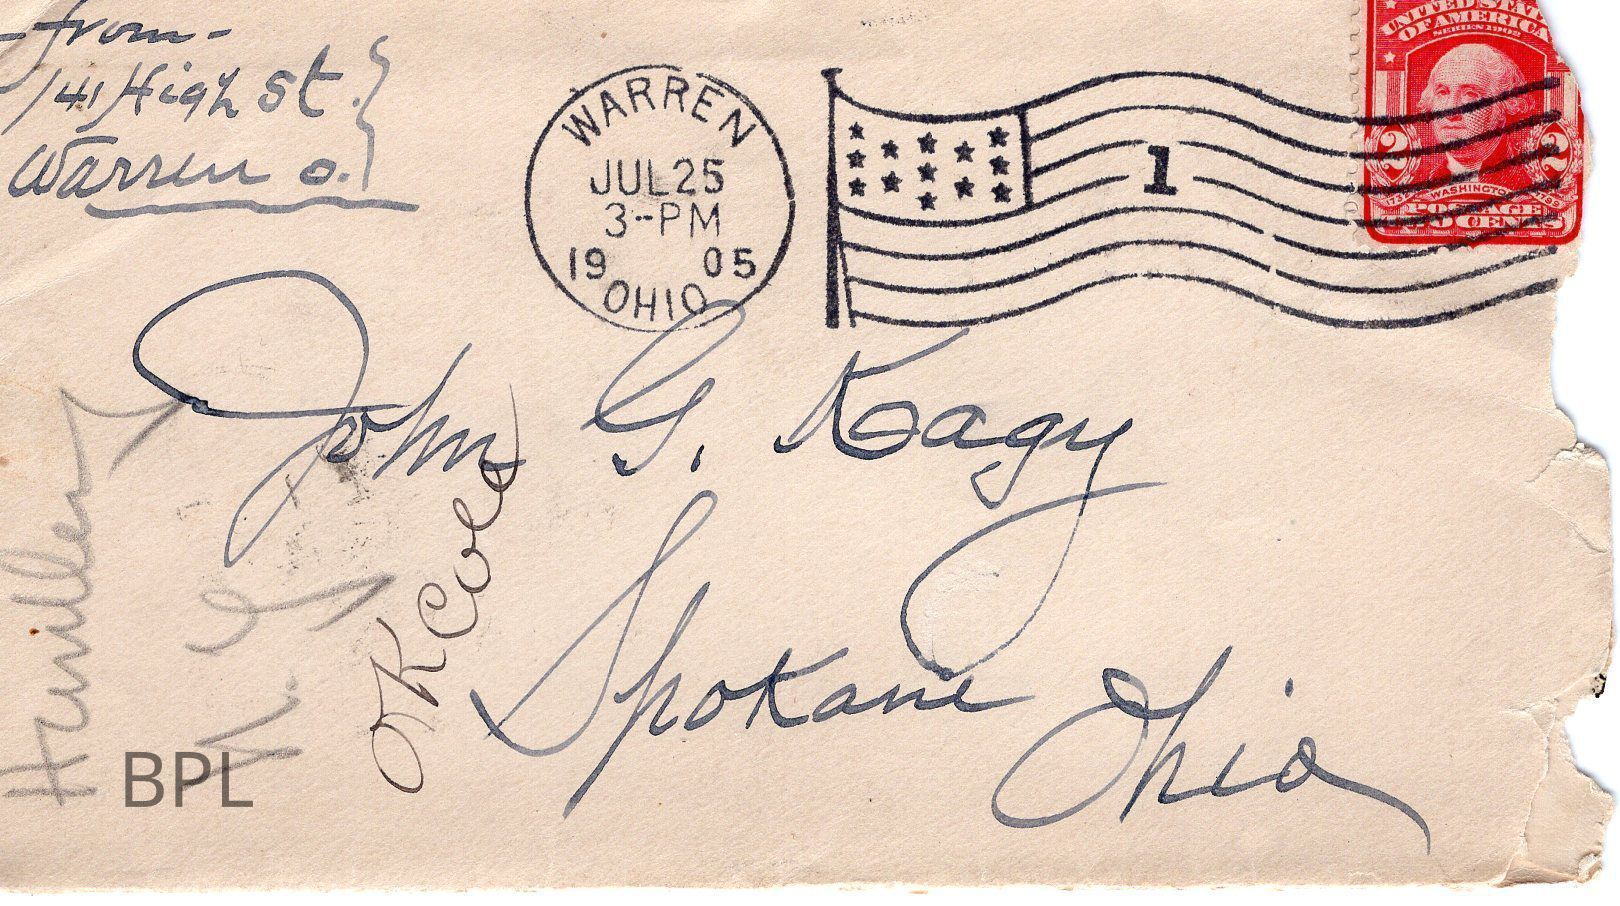 -from-
141 High St.
Warren O.
WARREN
JUL 25
3-PM
19 05
OHIO
1
UNITED STATES
OF AMERICA
SERIES 1902
2 2
WASHINGTON
POSTAGE
TWO CENTS
John G. Kagy
Spokane
Ohio
OK
BPL